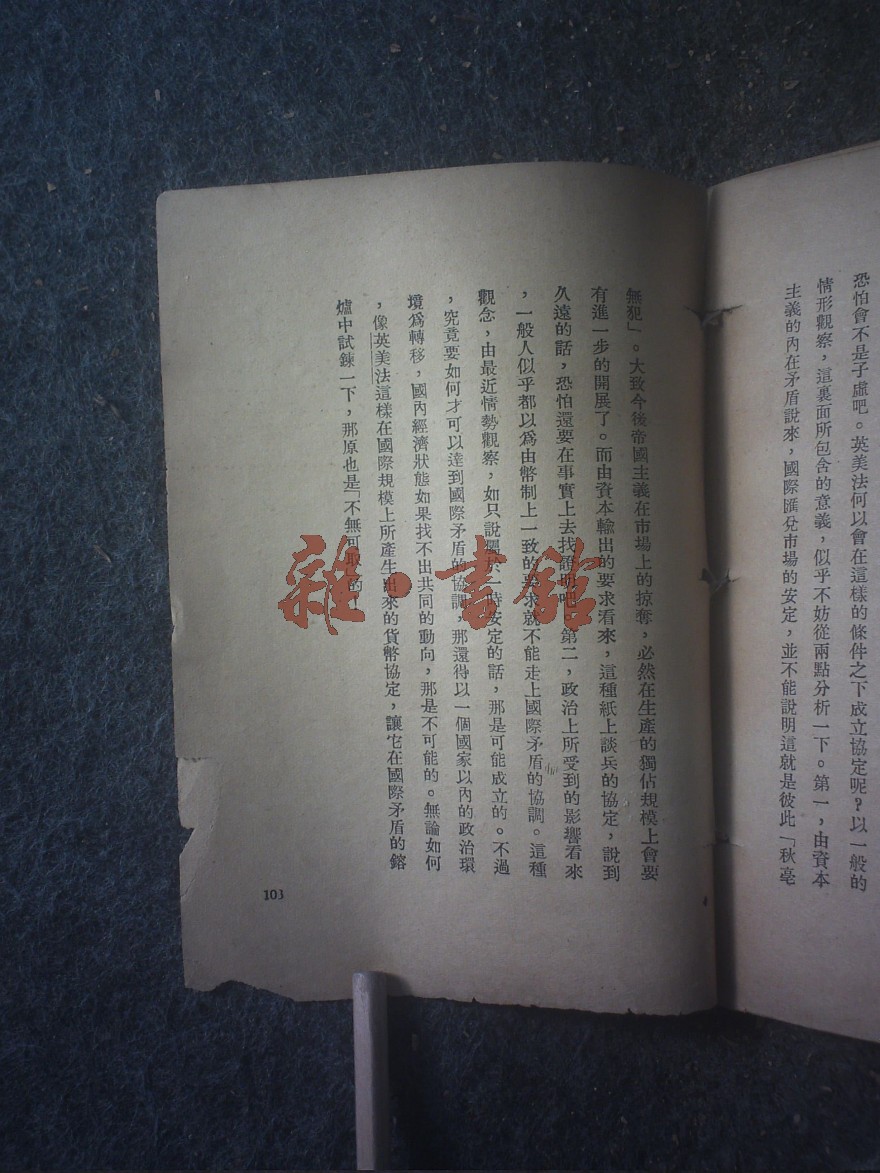 恐怕會不是子虛吧。英美法何以會在這樣的條件之下成立協定呢？以一般的
情形觀察，這裏面所包含的意義，似乎不妨從兩點分析一下。第一，由資本
主義的內在矛盾說來，國際匯兌市場的安定，並不能說明這就是彼此「秋毫
無犯」。大致今後帝國主義在市場上的掠奪，必然在生產的獨佔規模上會要
有進一步的開展了。而由資本輸出的要求看來，這種紙上談兵的協定，說到
久遠的話，恐怕還要在事實上去找證明吧。第二，政治上所受到的影響看來
，一般人似乎都以爲由幣制上一致的要求就不能走上國際矛盾的協調。這種
觀念，由最近情勢觀察，如只說屬於一時安定的話，那是可能成立的。不過
，究竟要如何才可以達到國際矛盾的協調，那還待以一個國家以內的政治環
境爲轉移，國內經濟狀態如果找不出共同的動向，那是不可能的。無論如何
，像英美法這樣在國際規模上所產生出來的貨幣協定，讓它在國際矛盾的鎔
爐中試鍊一下，那原也是「不無可取」的！
103
雜·書館